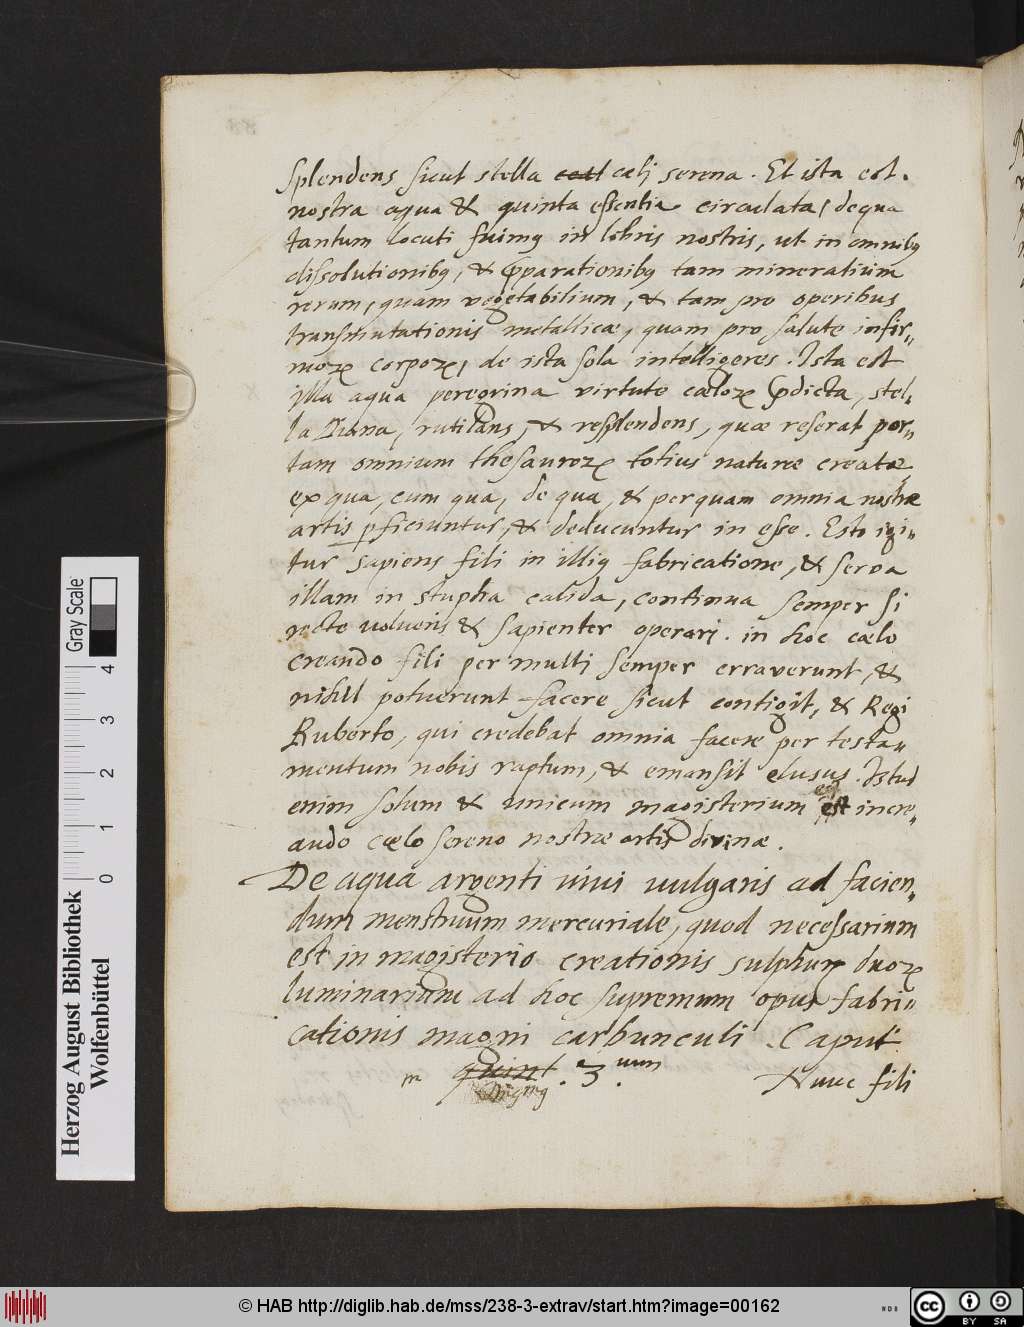 splendens sicut stella cœli serena. Et ista est
nostra aqua & quinta essentia circulata, de qua
tantum locuti fuimꝰ in libris nostris, ut in omnibꝰ
dissolutionibꝰ, & pparationibꝰ tam mineralium
rerum, quam vegetabilium, & tam pro operibus
transmutationis metallicæ, quam pro salute infir„
morꝝ corporꝝ, de ista sola intelligeres. Ista est
illa aqua peregrina virtute cœlorꝝ pdicta, stel„
la Diana, rutilans, & resplendens, quæ reserat por„
tam omnium thesaurorꝝ totius naturæ creatæ
ex qua, cum qua, de qua, & per quam omnia nostræ
artis pficiuntur, & deducuntur in esse. Esto igi„
tur sapiens fili in illiꝰ fabricatione, & serva
illam in stupha calida, continua semper si
recte volueris & sapienter operari. in hoc cœlo
creando fili per multi semper erraverunt, &
nihil potuerunt facere sicut contigit, & Regi
Ruberto, qui credebat omnia facere per testa„
mentum nobis raptum, & emansit elusus. Istud
enim solum & unicum magisterium est in cre„
ando cœlo sereno nostræ artis divinæ.
De aqua argenti vivi vulgaris ad facien„
dum menstruum mercuriale, quod necessarium
est in magisterio creationis sulphurꝝ duorꝝ
luminarium ad hoc supremum opus fabri„
cationis magni carbunculi Caput
m quint .3.um
Nunc fili
Herzog August Bibliothek
Wolfenbüttel
0 1 2 3 4
Gray Scale
© HAB http://diglib.hab.de/mss/238-3-extrav/start.htm?image=00162
NDB
cc BY SA